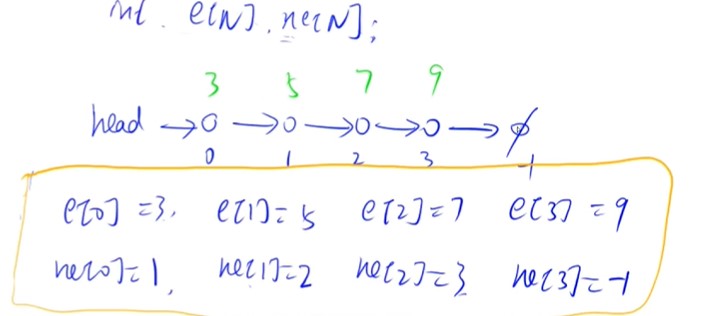 int e[N], ne[N];
3 5 7 9
head → o → o → o → o → ∅
0 1 2 3 -1
e[0] = 3, e[1] = 5 e[2] = 7 e[3] = 9
ne[0] = 1, ne[1] = 2 ne[2] = 3 ne[3] = -1